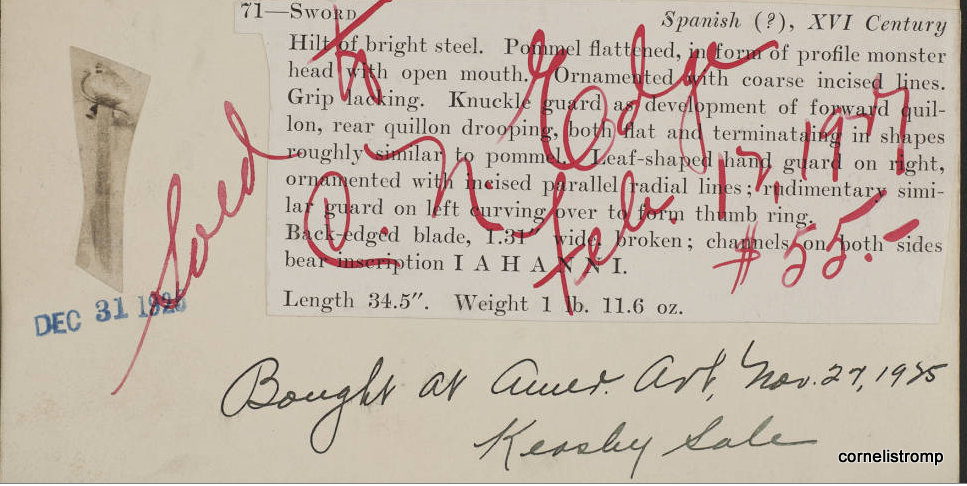 71—Sword
Spanish (?), XVI Century
Hilt of bright steel. Pommel flattened, in form of profile monster
head with open mouth. Ornamented with coarse incised lines.
Grip lacking. Knuckle guard as development of forward quil-
lon, rear quillon drooping, both flat and terminataing in shapes
roughly similar to pommel. Leaf-shaped hand guard on right,
ornamented with incised parallel radial lines; rudimentary simi-
lar guard on left curving over to form thumb ring.
Back-edged blade, 1.31" wide, broken; channels on both sides
bear inscription I A H A N N I.
Length 34.5". Weight 1 lb. 11.6 oz.
Sold to
Edge
Feb. 12, 1927
$55.-
DEC 31
Bought at Amer. Art, Nov. 27, 1925
Keasby Sale
cornelistromp